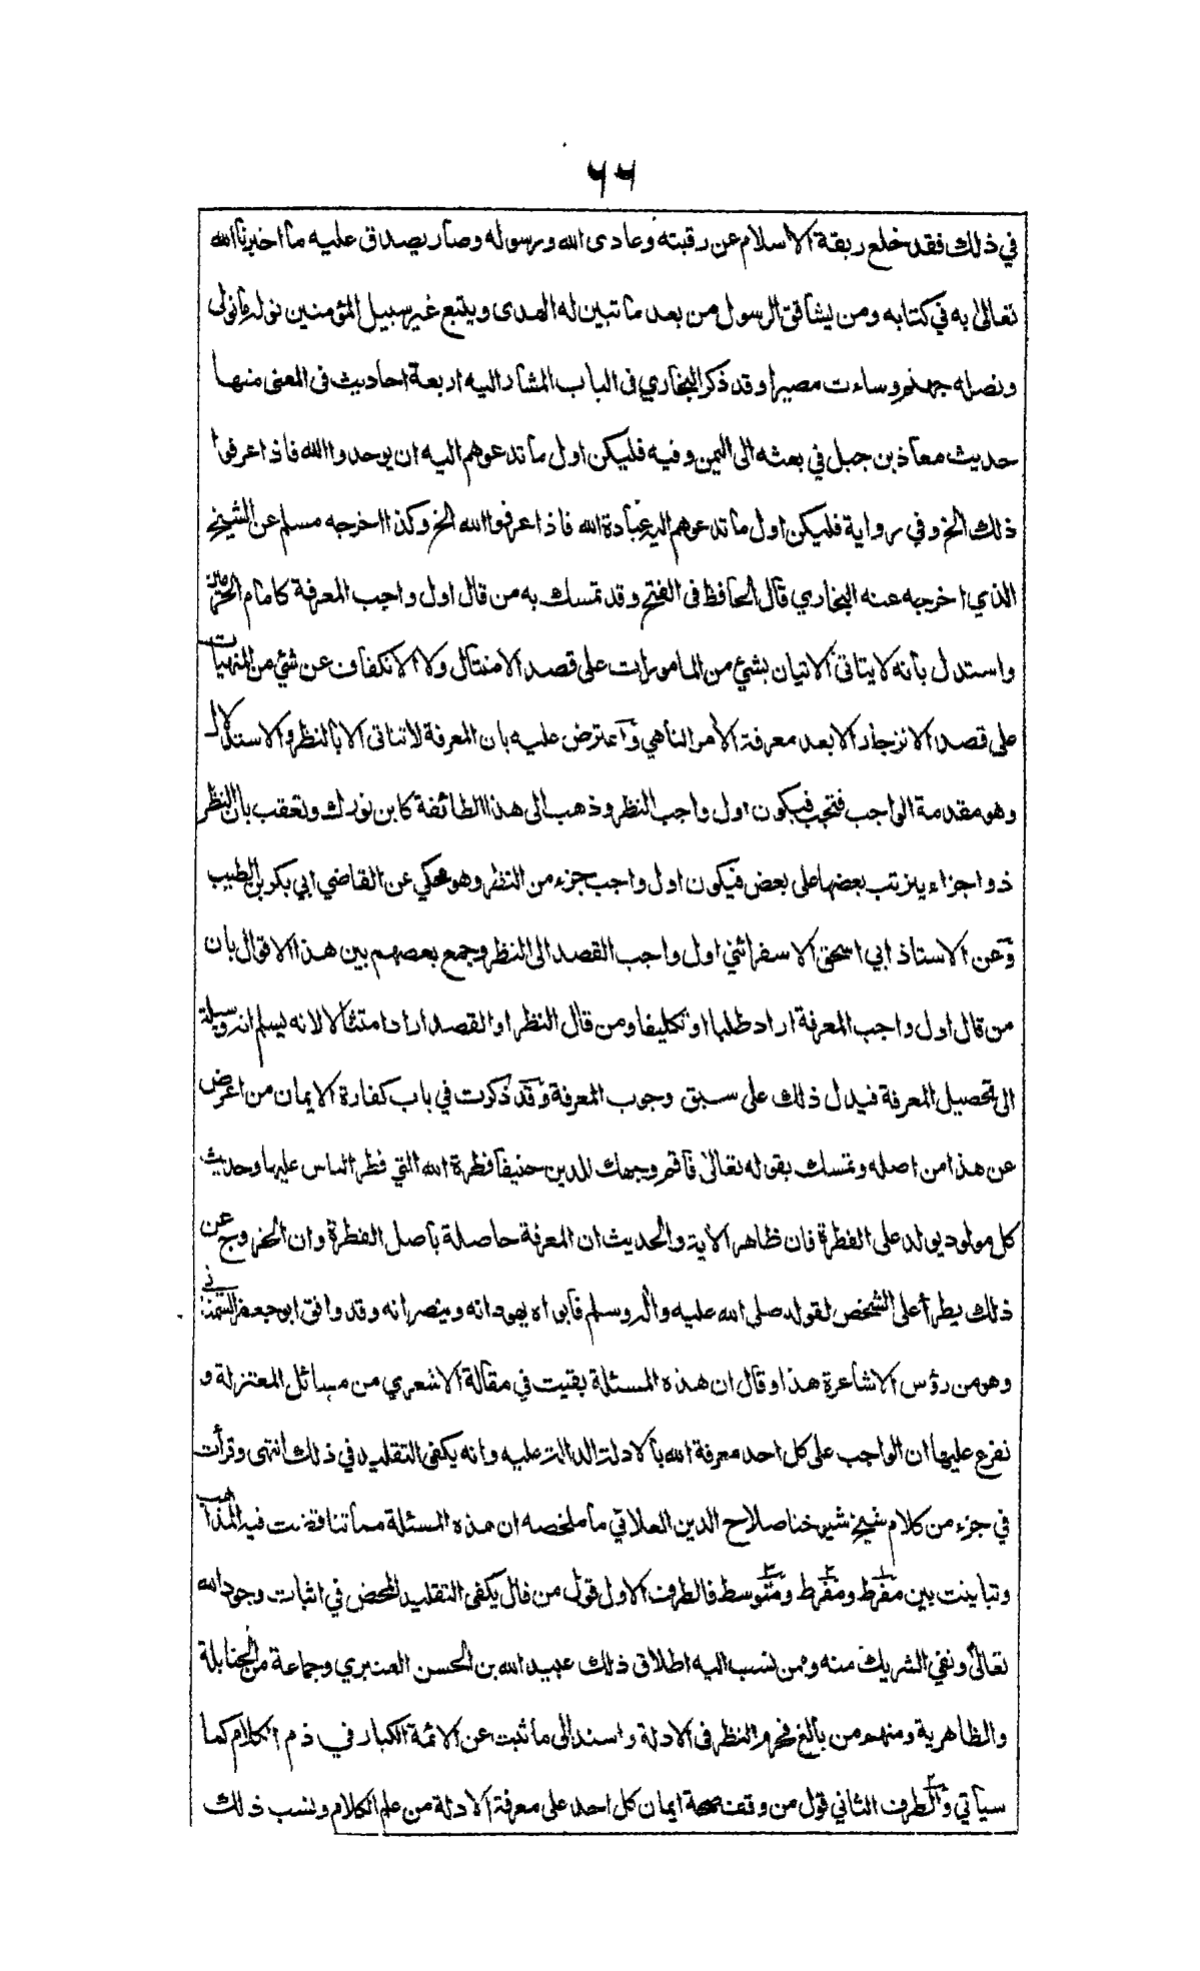 ٦٦
في ذلك فقد خلع ربقة الاسلام عن رقبته وعادى الله ورسوله وصار يصدق عليه ما اخبرنا الله
تعالى به في كتابه ومن يشاقق الرسول من بعد ما تبين له الهدى ويتبع غير سبيل المؤمنين نوله ما تولى
ونصله جهنم وساءت مصيرا وقد ذكر البخاري فى الباب المشار اليه اربعة احاديث فى المعنى منها
حديث معاذ بن جبل في بعثه الى اليمن وفيه فليكن اول ما تدعوهم اليه ان يوحدوا الله فاذا عرفوا
ذلك الخ وفي رواية فليكن اول ما تدعوهم اليه عبادة الله فاذا عرفوا الله الخ وكذا اخرجه مسلم عن الشيخ
الذي اخرجه عنه البخاري قال الحافظ فى الفتح وقد تمسك به من قال اول واجب المعرفة كامام الحرمين
واستدل بانه لا يتاتى الاتيان بشئ من المامورات على قصد الامتثال ولا الانكفاف عن شئ من المنهيات
على قصد الانزجار الا بعد معرفة الأمر الناهي واعترض عليه بان المعرفة لا تتاتى الا بالنظر والاستدلال
وهو مقدمة الواجب فتجب فيكون اول واجب النظر وذهب الى هذا الطائفة كابن فورك وتعقب بان النظر
ذو اجزاء يترتب بعضها على بعض فيكون اول واجب جزء من النظر وهو محكي عن القاضي ابي بكر بن الطيب
وعن الاستاذ ابي اسحق الاسفرائني اول واجب القصد الى النظر وجمع بعضهم بين هذا الاقوال بان
من قال اول واجب المعرفة اراد طلبا او تكليفا ومن قال النظر او القصد اراد امتثالا لانه يسلم انه وسيلة
الى تحصيل المعرفة فيدل ذلك على سبق وجوب المعرفة وقد ذكرت في باب كفارة الايمان من اعرض
عن هذا من اصله وتمسك بقوله تعالى فاقم وجهك للدين حنيفا فطرة الله التي فطر الناس عليها وحديث
كل مولود يولد على الفطرة فان ظاهر الاية والحديث ان المعرفة حاصلة باصل الفطرة وان الخروج عن
ذلك يطرأ على الشخص لقوله صلى الله عليه واله وسلم فابواه يهودانه وينصرانه وقد وافق ابو جعفر السمناني
وهو من رؤس الاشاعرة هذا وقال ان هذه المسئلة بقيت في مقالة الاشعري من مسائل المعتزلة و
تفرع عليها ان الواجب على كل احد معرفة الله بالادلة الدالة عليه وانه يكفى التقليد في ذلك انتهى وقرأت
في جزء من كلام شيخ شيوخنا صلاح الدين العلائي ما ملخصه ان هذه المسئلة مما تناقضت فيه المذاهب
وتباينت بين مفرط ومفرط ومتوسط فالطرف الاول قول من قال يكفى التقليد المحض في اثبات وجود الله
تعالى ونفي الشريك منه وممن نسب اليه اطلاق ذلك عبيد الله بن الحسن العنبري وجماعة من الحنابلة
والظاهرية ومنهم من بالغ فحرم النظر فى الادلة واستند الى ما ثبت عن الائمة الكبار في ذم الكلام كما
سياتي والطرف الثاني قول من وقف صحة ايمان كل احد على معرفة الادلة من علم الكلام ونسب ذلك